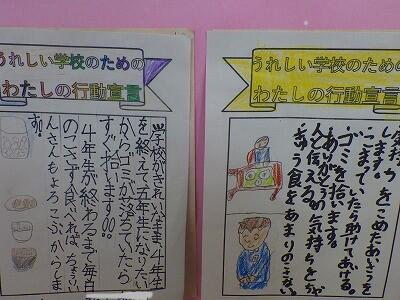 うれしい学校のための
わたしの行動宣言
学校がきれいなまま、4年生
を終えて五年生になりたい
から、ゴミが落ちていたら
すぐ拾います!!。
4年生が終わるまで毎日
のこさず食べれば、ちょうり
んさんもよろこぶからしま
す!
うれしい学校のための
わたしの行動宣言
気持ちをこめたあいさつを
します。
こまっていたら助けてあげる。
ゴミを拾います。
ありがとうの気持ちを
人に伝える。
きゅう食をあまりのこさない。